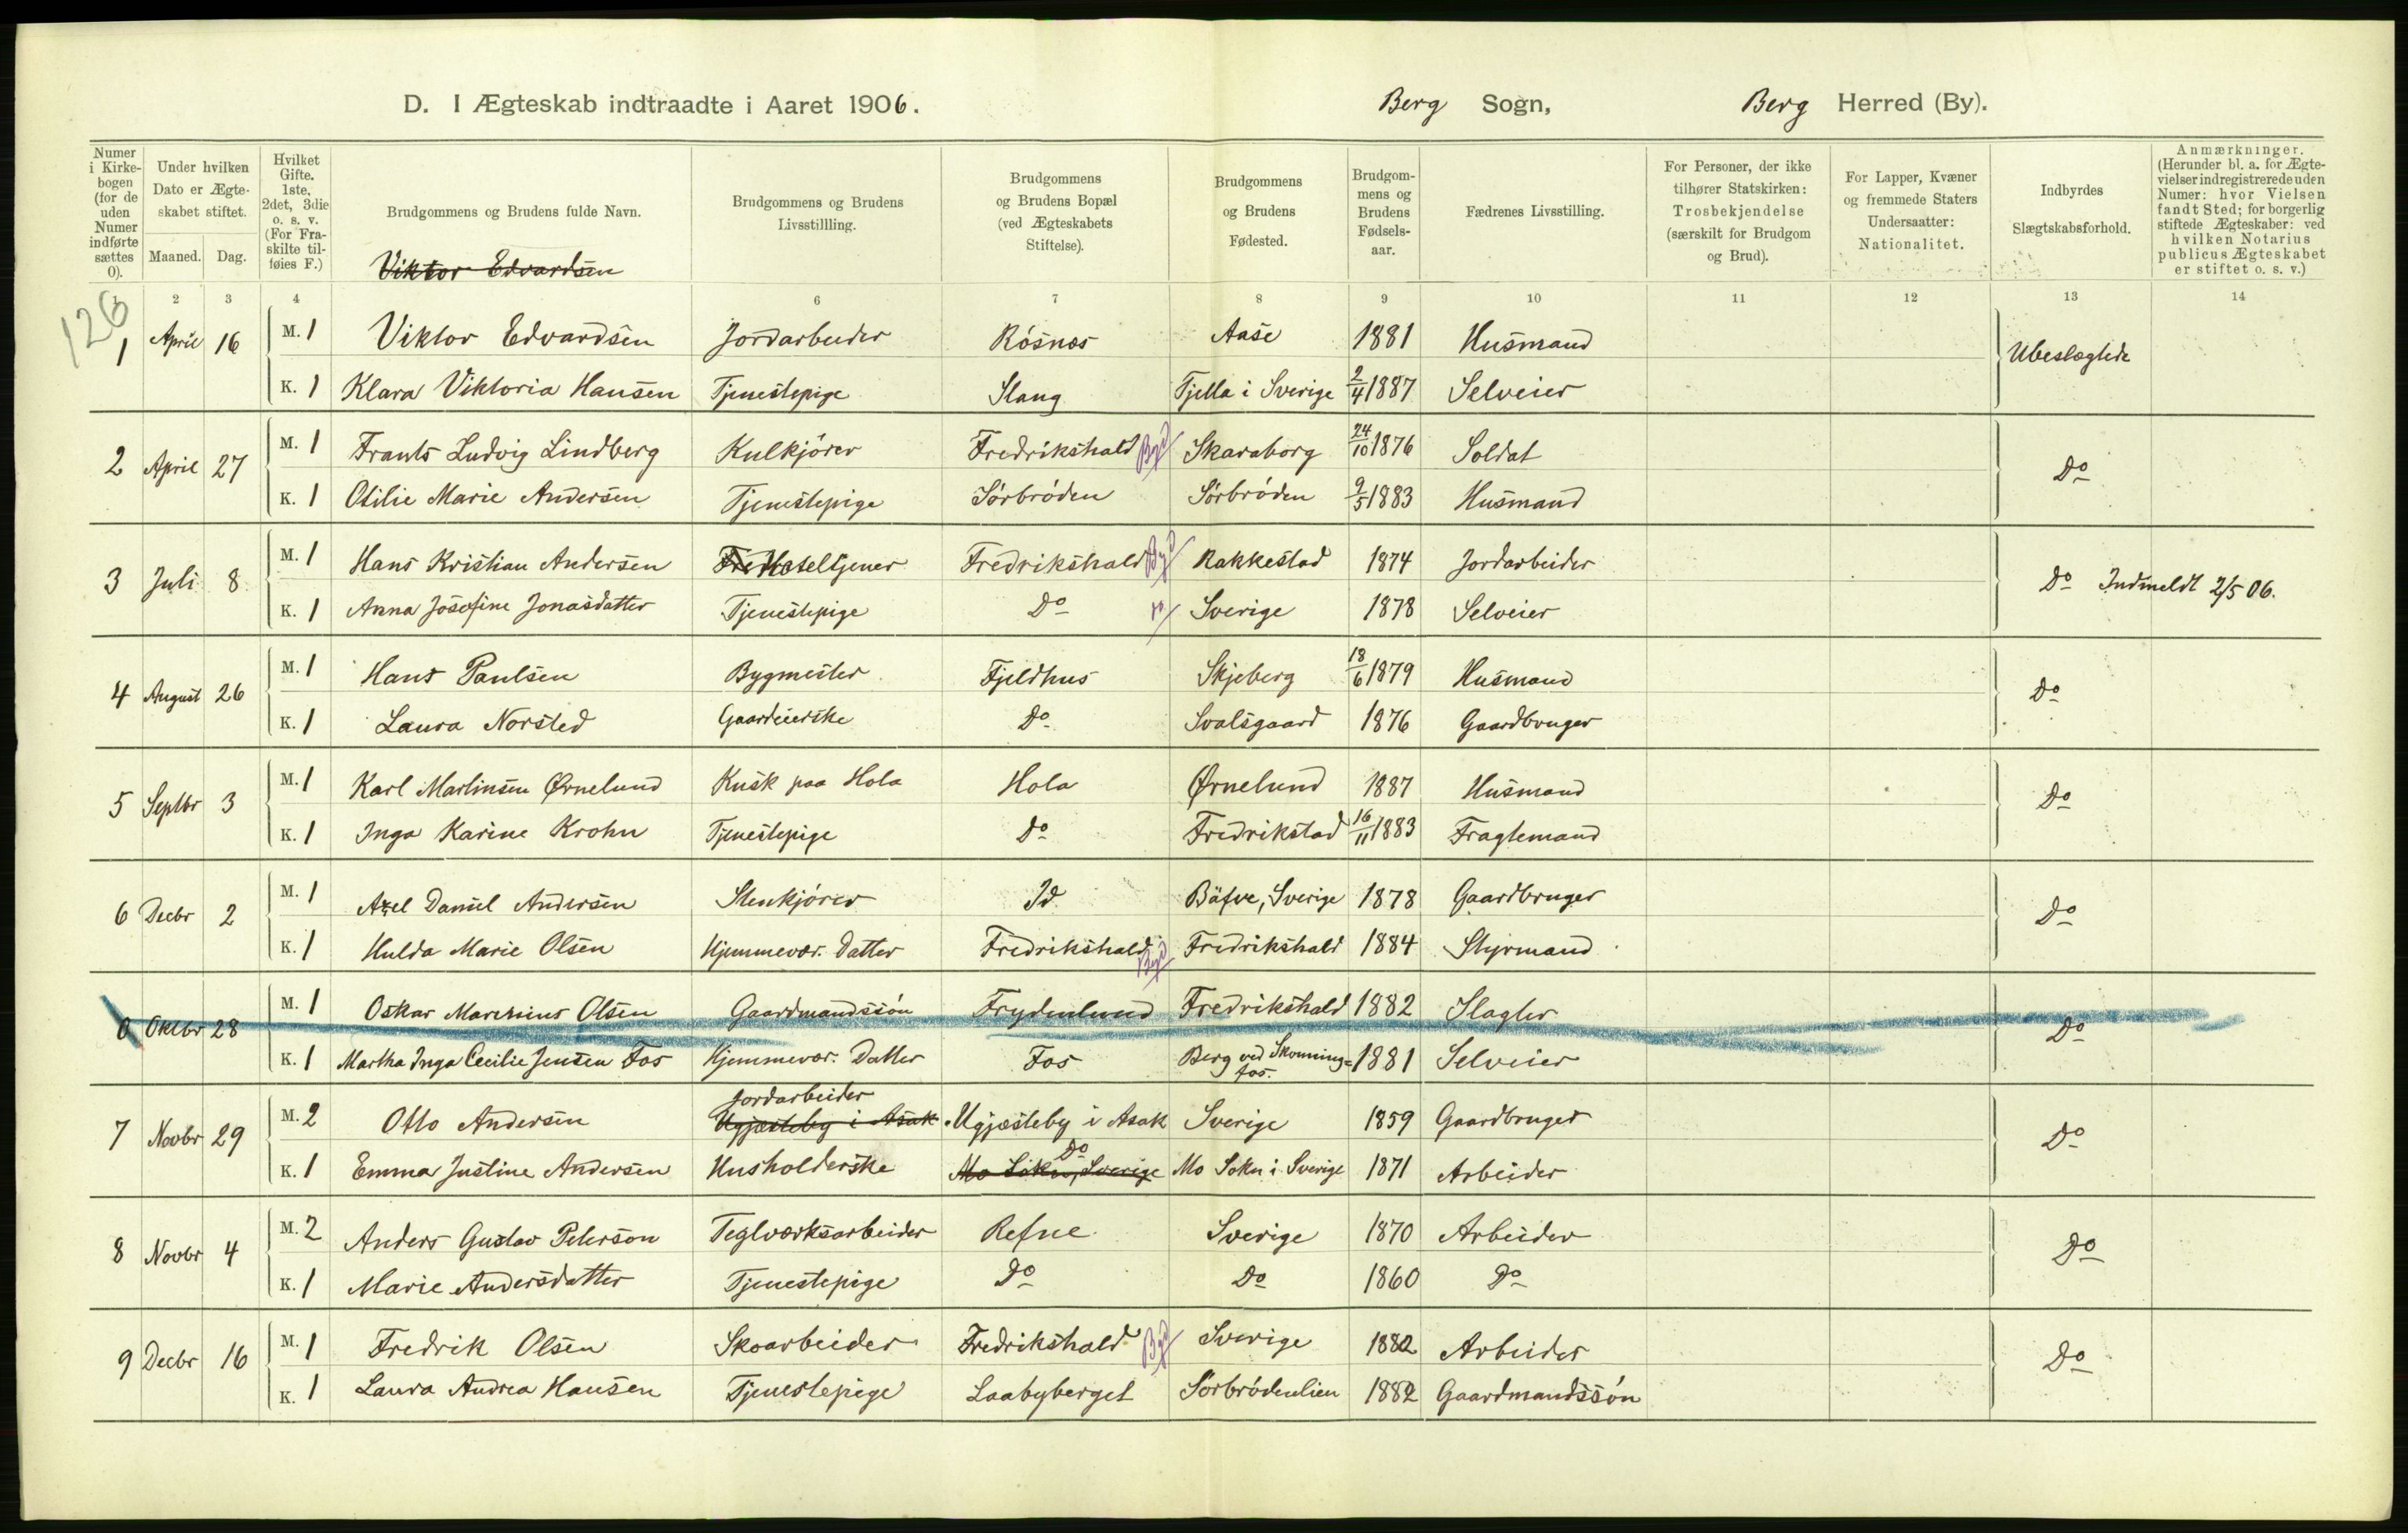 D. I Ægteskab indtraadte i Aaret 1906. Berg Sogn, Berg Herred (By).
Numer i Kirkebogen (for de uden Numer indførte sættes 0).
Under hvilken Dato er Ægteskabet stiftet.
Maaned. Dag.
Hvilket Gifte. 1ste, 2det, 3die o. s. v. (For Fraskilte tilføies F.)
Brudgommens og Brudens fulde Navn.
Viktor Edvardsen
Brudgommens og Brudens Livsstillling.
Brudgommens og Brudens Bopæl (ved Ægteskabets Stiftelse).
Brudgommens og Brudens Fødested.
Brudgommens og Brudens Fødselsaar.
Fædrenes Livsstilling.
For Personer, der ikke tilhører Statskirken: Trosbekjendelse (særskilt for Brudgom og Brud).
For Lapper, Kvæner og fremmede Staters Undersaatter: Nationalitet.
Indbyrdes Slægtskabsforhold.
Anmærkninger. (Herunder bl. a. for Ægtevielser indregistrerede uden Numer: hvor Vielsen fandt Sted; for borgerlig stiftede Ægteskaber: ved hvilken Notarius publicus Ægteskabet er stiftet o. s. v.)
2 3 4 6 7 8 9 10 11 12 13 14
126
1 April 16 M. 1 Viktor Edvardsen Jordarbeider Rösnæs Aase 1881 Husmand Ubeslægtede
K. 1 Klara Viktoria Hansen Tjenestepige Stang Tjella i Sverige 2/4 1887 Selveier
2 April 27 M. 1 Frants Ludvig Lindberg Kulkjörer Fredrikshald Byd Skaraborg 24/10 1876 Soldat Do
K. 1 Otilie Marie Andersen Tjenestepige Sörbröden Sörbröden 9/5 1883 Husmand
3 Juli 8 M. 1 Hans Kristian Andersen Fred Hoteltjener Fredrikshald Byd Rakkestad 1874 Jordarbeider Do Indmeldt 2/5 06.
K. 1 Anna Josefine Jonasdatter Tjenestepige Do Sverige 1878 Selveier
4 August 26 M. 1 Hans Paulsen Bygmester Fjeldhus Skjeberg 18/6 1879 Husmand Do
K. 1 Laura Norsted Gaardeierske Do Svalsgaard 1876 Gaardbruger
5 Septbr 3 M. 1 Karl Martinsen Ørnelund Kusk paa Hola Hola Ørnelund 1887 Husmand Do
K. 1 Inga Karine Krohn Tjenestepige Do Fredrikstad 16/11 1883 Fragtemand
6 Decbr 2 M. 1 Axel Daniel Andersen Stenkjörer Id Bäfve, Sverige 1878 Gaardbruger Do
K. 1 Hulda Marie Olsen Hjemmevær. Datter Fredrikshald Byd Fredrikshald 1884 Styrmand
0 Oktbr 28 M. 1 Oskar Marenius Olsen Gaardmandssön Frydenlund Fredrikshald 1882 Slagter Do
K. 1 Martha Inga Cecilie Jensen Fos Hjemmevær. Datter Fos Berg ved Skonningfos. 1881 Selveier
Jordarbeider
7 Novbr 29 M. 2 Otto Andersen Ugjæsteby i Asak Ugjæsteby i Asak Sverige 1859 Gaardbruger Do
Do
K. 1 Emma Justine Andersen Husholderske Mo Sokn, Sverige Mo Sokn i Sverige 1871 Arbeider
8 Novbr 4 M. 2 Anders Gustav Peterson Teglværksarbeider Refne Sverige 1870 Arbeider Do
K. 1 Marie Andersdatter Tjenestepige Do Do 1860 Do
9 Decbr 16 M. 1 Fredrik Olsen Skoarbeider Fredrikshald Byd Sverige 1882 Arbeider Do
K. 1 Laura Andrea Hansen Tjenestepige Laabyberget Sörbrödenlien 1882 Gaardmandssön